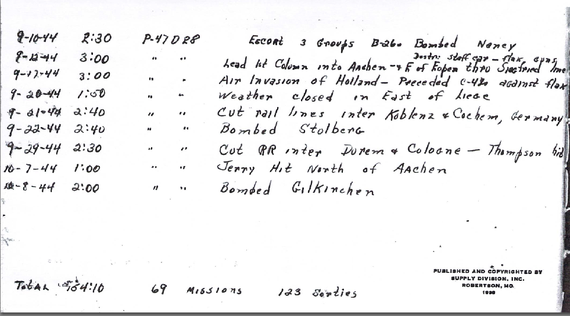 9-10-44 2:30 P-47D28 Escort 3 Groups B-26s Bombed Nancy
9-12-44 3:00 " " Lead 1st Column into Aachen - E of Eupen thru Siegfried line
staff car - flax guns
9-17-44 3:00 " " Air Invasion of Holland - Preceded C-43s against flax
9-20-44 1:50 " " Weather closed in East of Liege
9-21-44 2:40 " " Cut rail lines inter Koblenz & Cochem, Germany
9-22-44 2:40 " " Bombed Stolberg
9-29-44 2:30 " " Cut RR inter Durem & Cologne - Thompson hit
10-7-44 1:00 " " Jerry Hit North of Aachen
10-8-44 2:00 " " Bombed Gilkirchen
PUBLISHED AND COPYRIGHTED BY
SUPPLY DIVISION, INC.
ROBERTSON, MO.
Total 154:10 69 Missions 123 Sorties